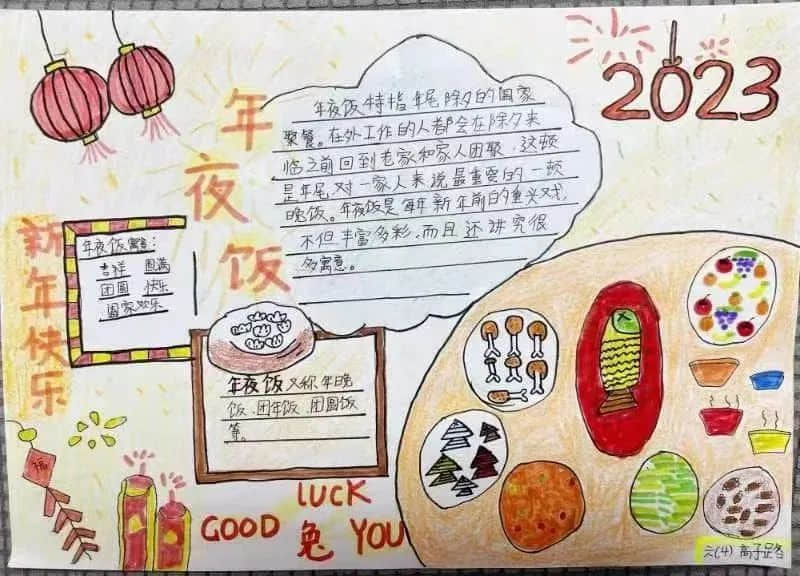 2023
年夜饭
年夜饭特指年尾除夕的阖家
聚餐。在外工作的人都会在除夕来
临之前回到老家和家人团聚，这顿
是年尾对一家人来说最重要的一顿
晚饭。年夜饭是每年新年前的重头戏，
不但丰富多彩，而且还讲究很
多寓意。
新年快乐
年夜饭寓意：
吉祥 圆满
团圆 快乐
阖家欢乐
年夜饭又称年晚
饭、团年饭、团圆饭
等。
福
GOOD LUCK
兔 YOU
六(4) 高子